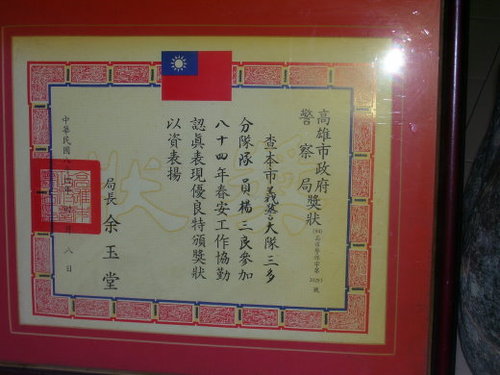 高雄市政府
警察局獎狀
查本市義警大隊三多
分隊隊員楊三良參加
八十四年春安工作協勤
認眞表現優良特頒獎狀
以資表揚
局長 余玉堂
中華民國八 月 八日